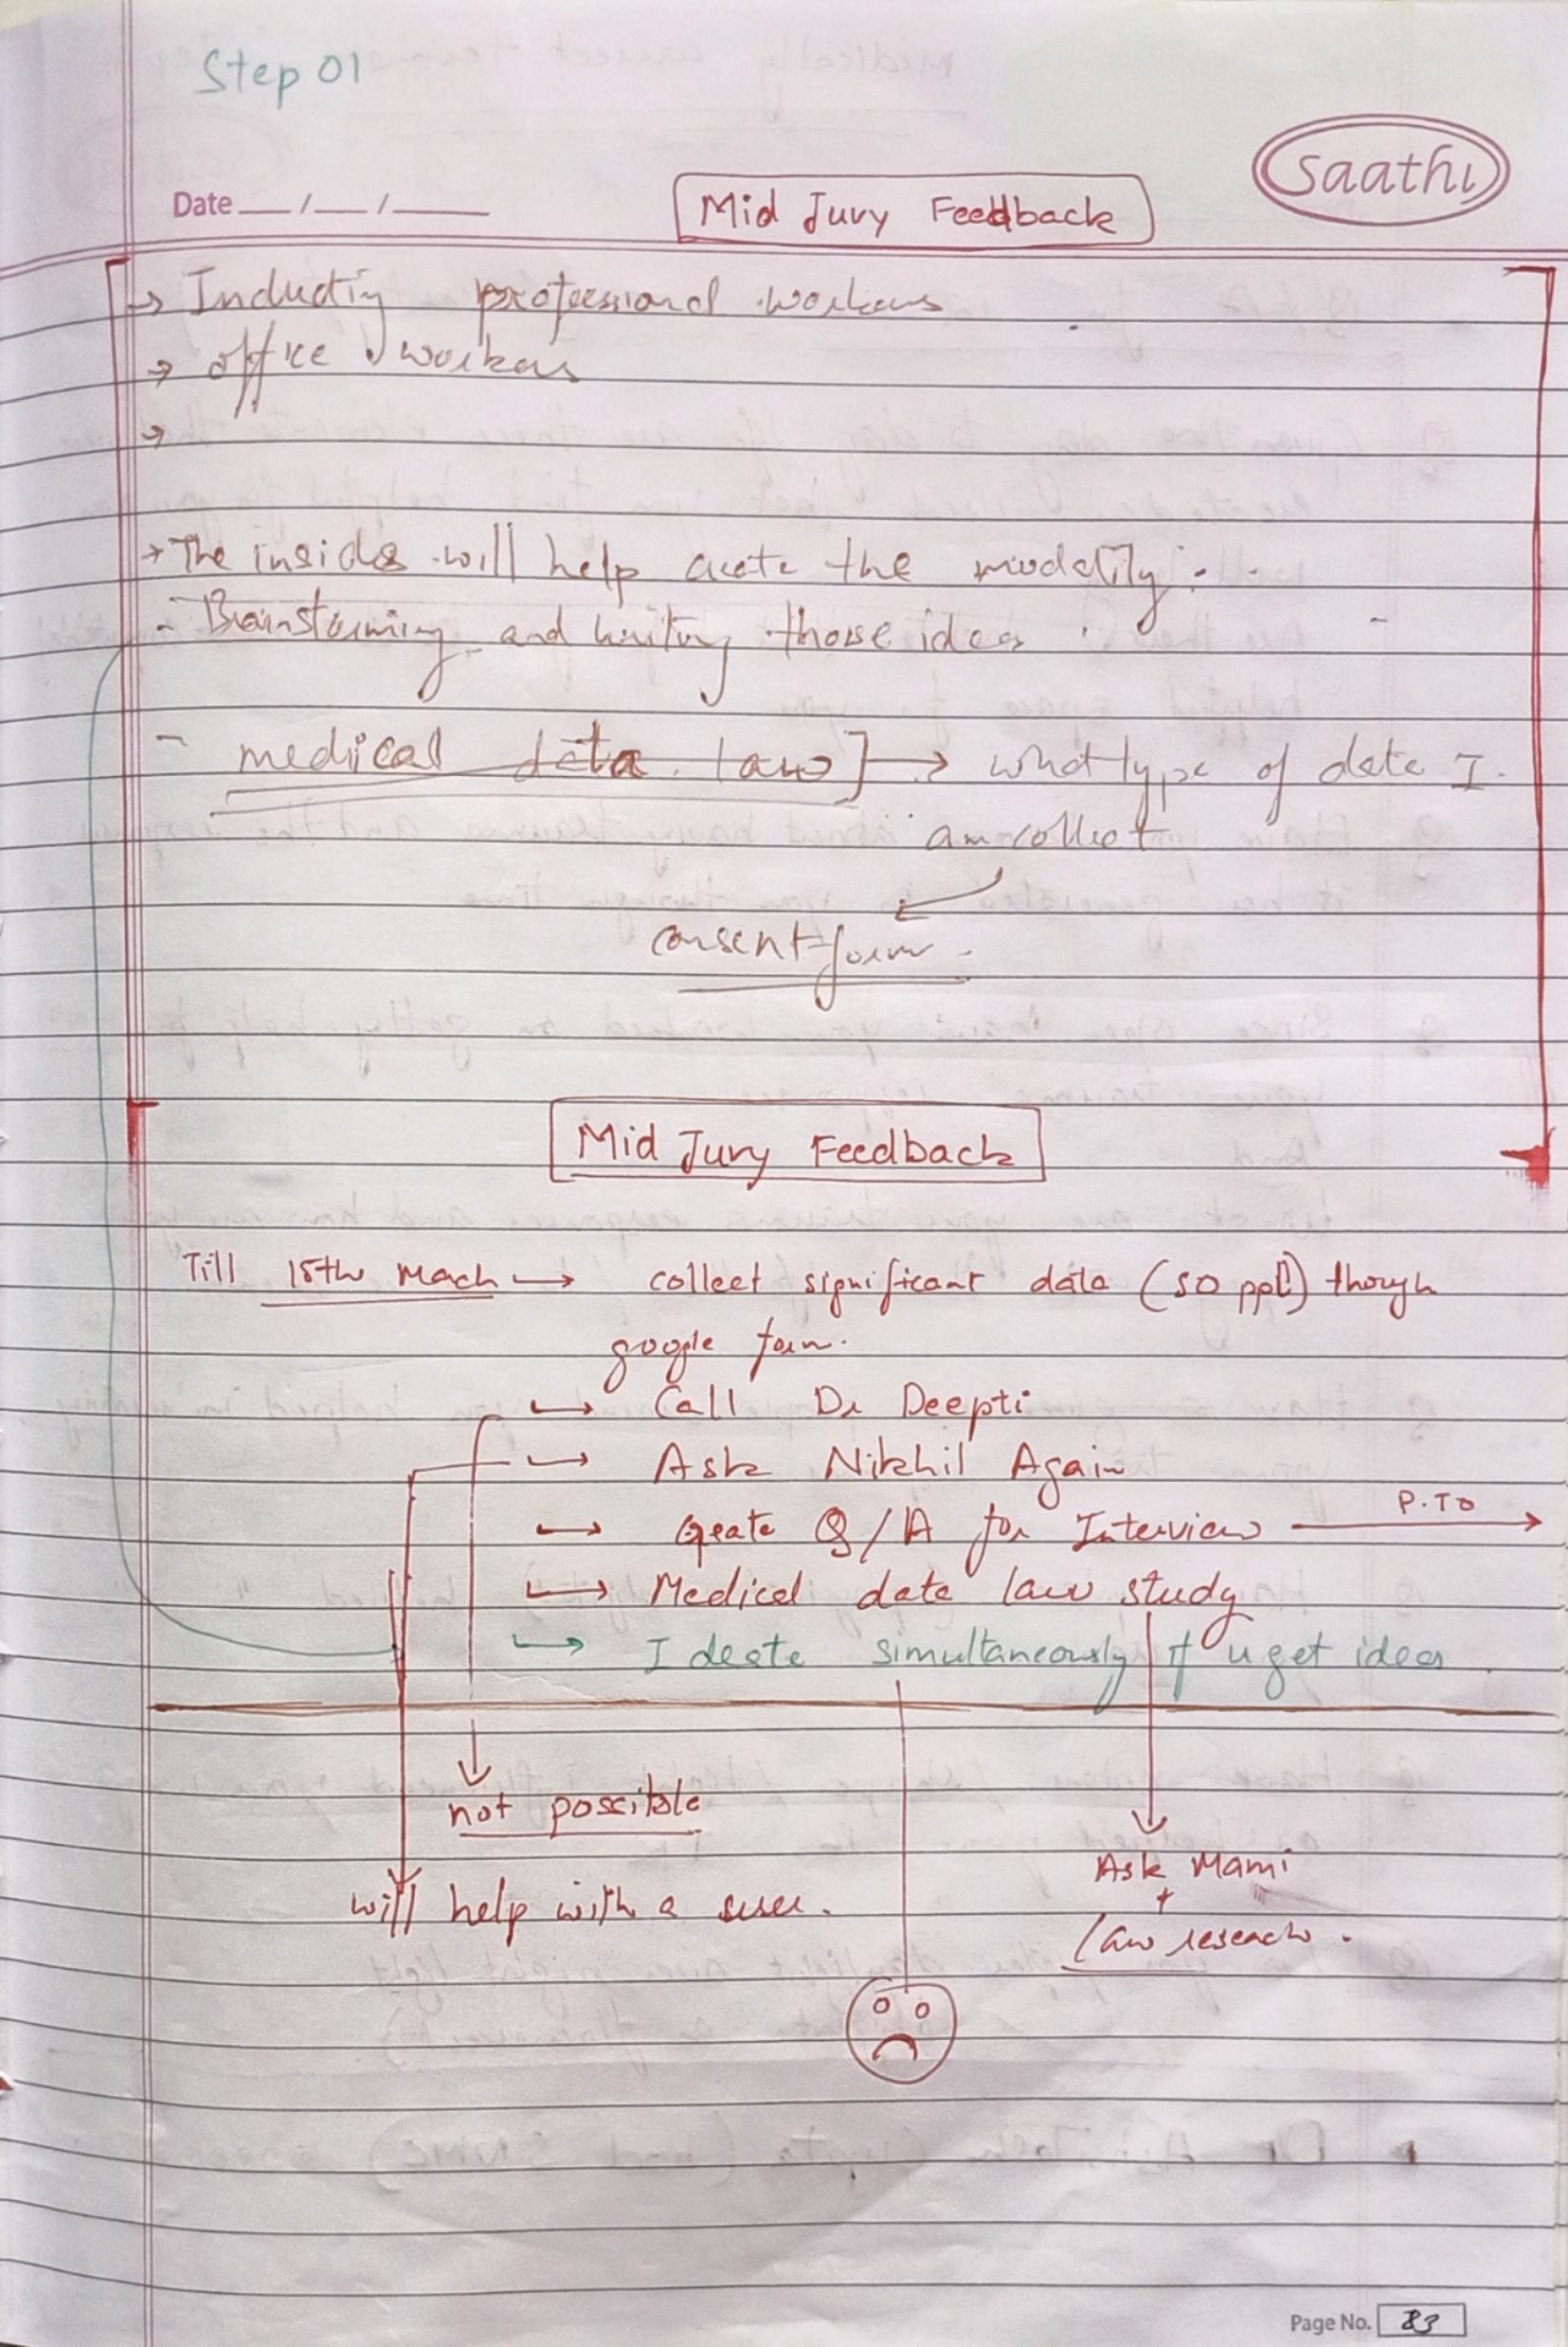 Step 01
saathi
Date __/__/____
Mid Jury Feedback
→ Including professional workers
→ office workers
→
→ The insides will help create the modality.
- Brainstorming and writing those idea
- medical data law] → what type of data I
am collect
consent form
Mid Jury Feedback
Till 15th March → collect significant data (50 ppl) though
google form.
→ Call Dr Deepti
→ Ask Nikhil Again
→ Create Q/A for Interview → P.TO
→ Medical data law study
→ Ideate simultaneously if u get ideas
not possible
Ask Mami
+
will help with a user.
law research.
Page No. 83